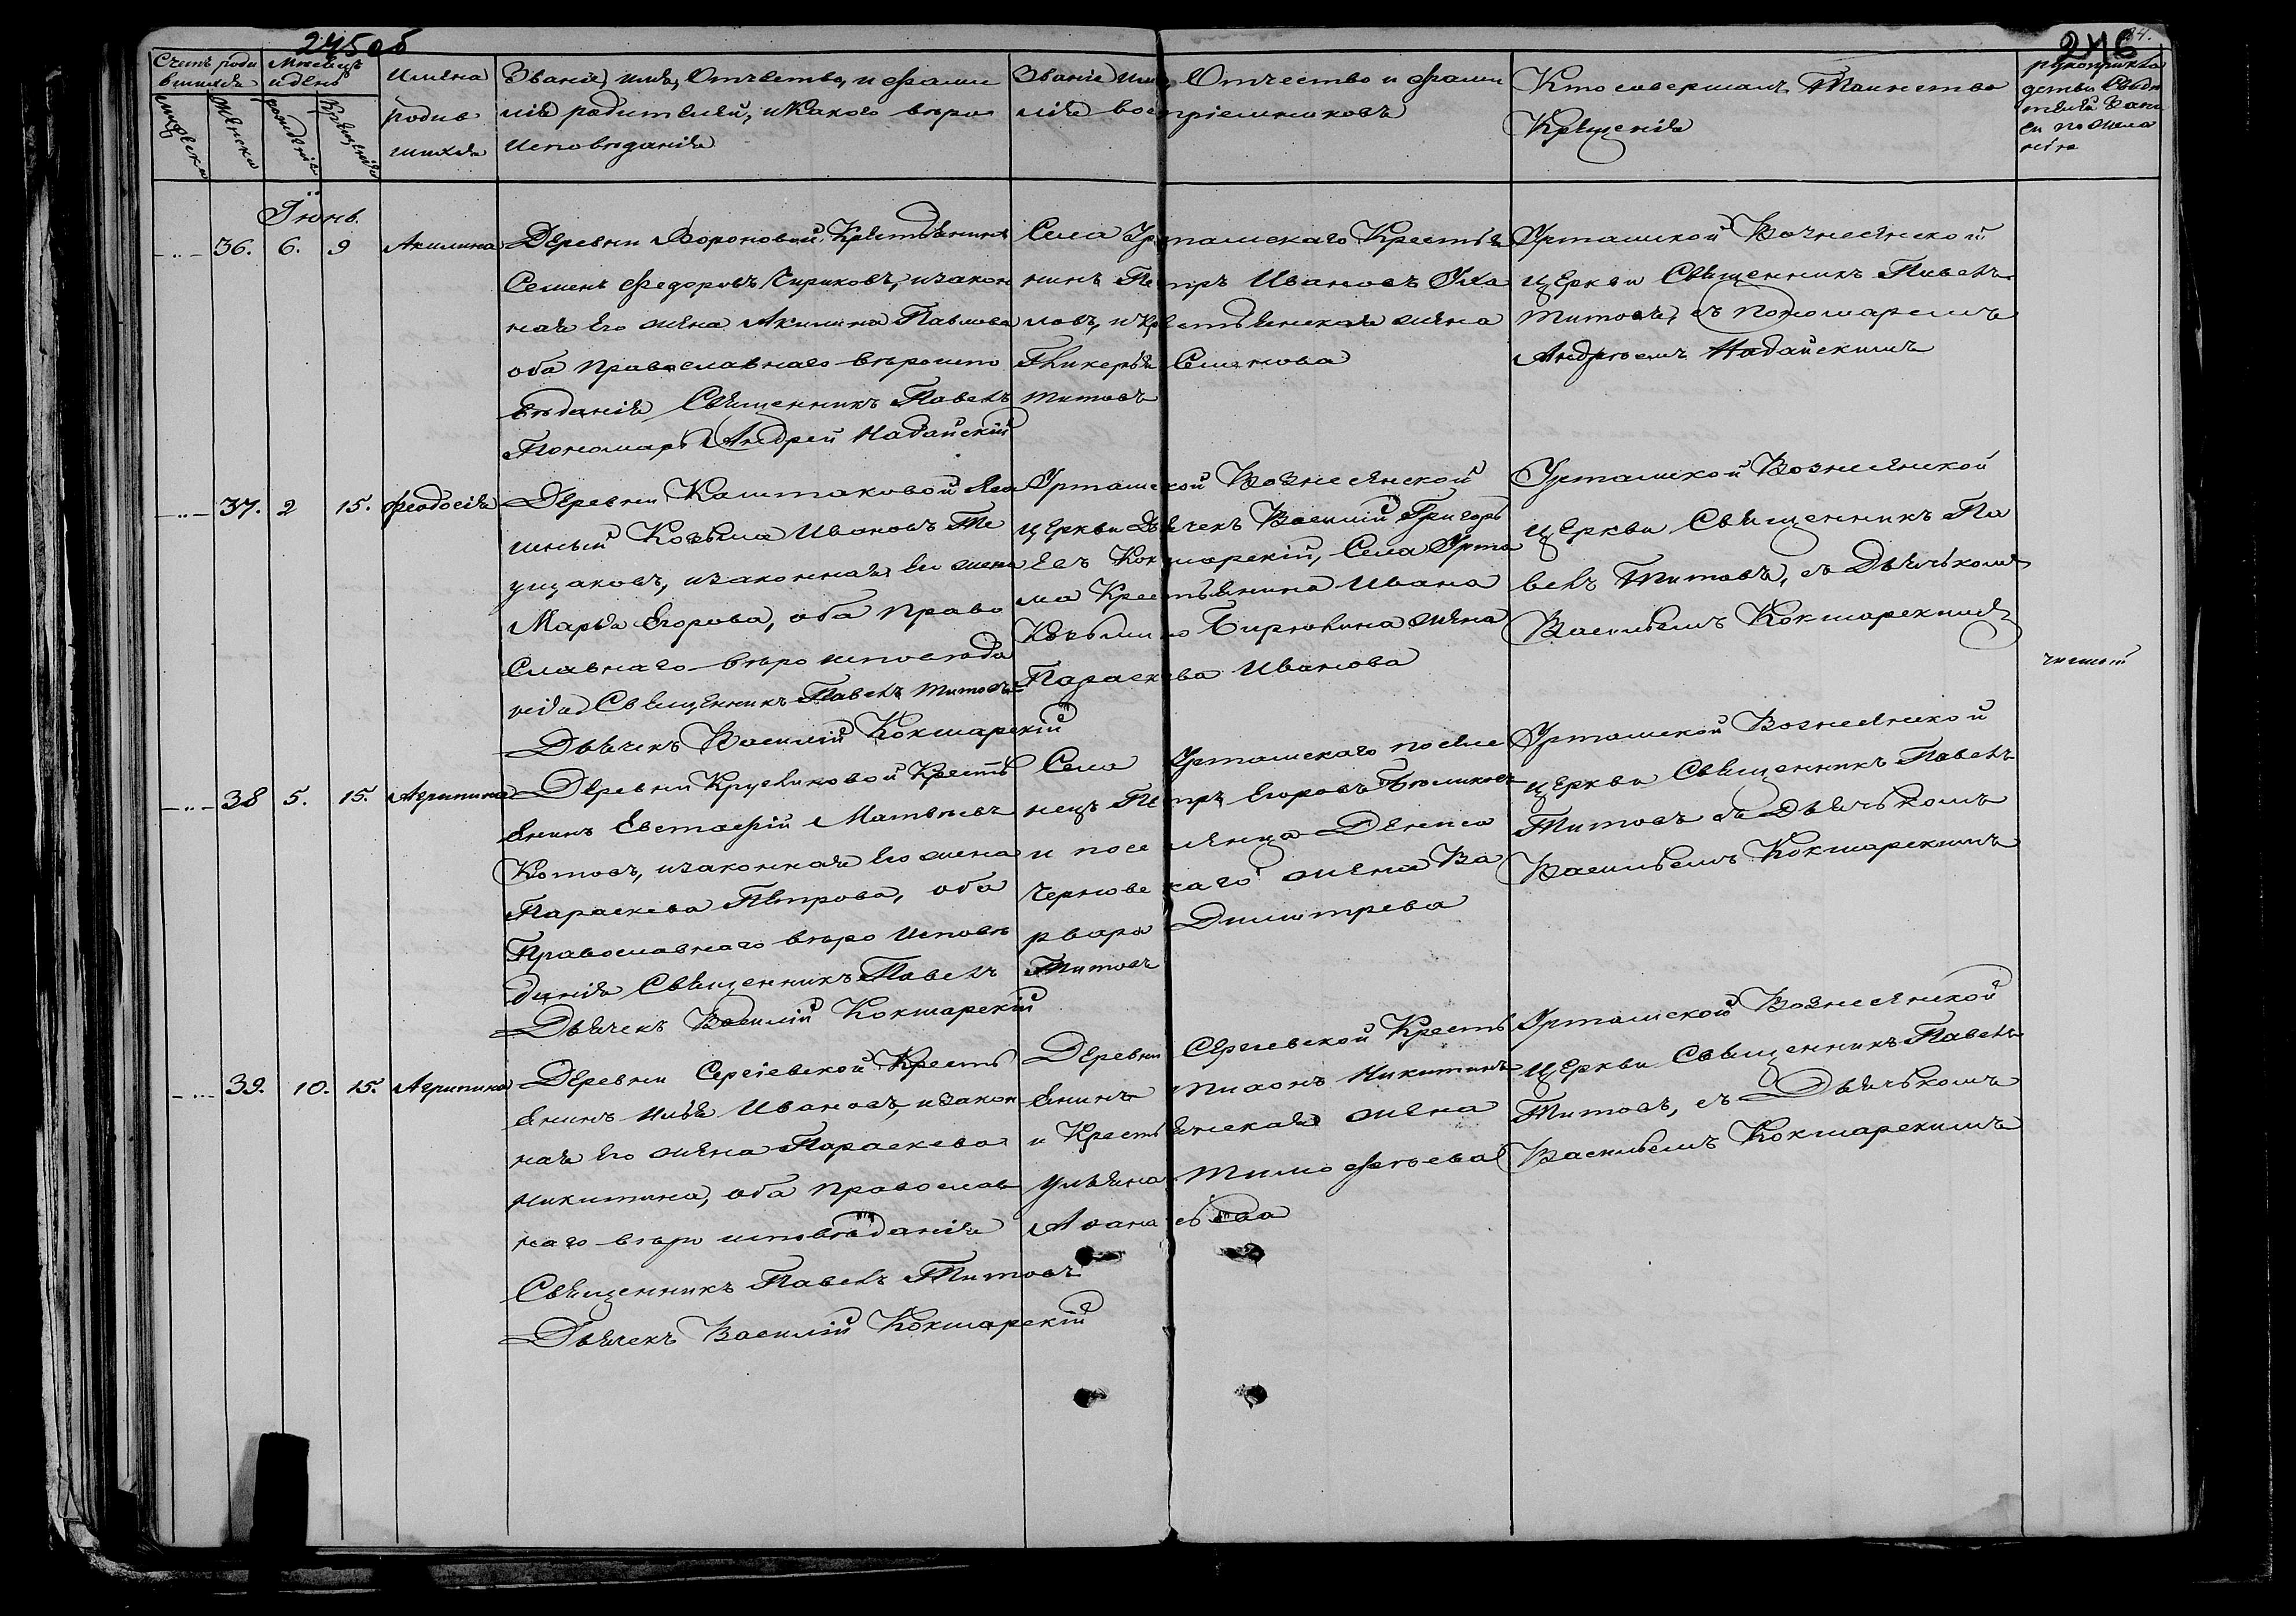 245об
246
34.
Счетъ роди
вшихся
Мѣсяцъ
и день
Мужеска
Женска
рожденія
Крещенія
Имена
родив
шихся
Званіе, имя, Отчество, и фами
лія родителей, и какого вѣро
исповѣданія
Званіе имя, Отчество и фами
лія воспріемниковъ
Кто совершалъ Таинство
Крещенія
рукоприкла
дство свидѣ
телей запи
си по жела
нію
Іюнь.
36. 6. 9 Акилина
Деревни Вороновой Крестьянинъ
Семенъ Федоровъ Чириковъ, и закон
ная его жена Акилина Павлова
оба православнаго вѣроиспо
вѣданія Священникъ Павелъ Титовъ
Пономарь Андрей Надайскій
Села Уртамскаго Крестья
нинъ Петръ Ивановъ Уха
ловъ, и Крестьянская жена
Гликерья Семенова
Уртамской Вознесенской
церкви Священникъ Павелъ
Титовъ, съ Пономаремъ
Андреемъ Надайскимъ
37. 2 15. Феодосія
Деревни Каштаковой Яса
шный Козьма Ивановъ Те
ущаковъ, и законная его жена
Марья Егорова, оба Право
славнаго вѣро исповѣда
нія Священникъ Павелъ Титовъ
Дьячекъ Василій Кокшарскій
Уртамской Вознесенской
церкви Дьячекъ Василій Григорь
евъ Кокшарскій, Села Урта
ма Крестьянина Ивана
Козьмино Бирюкина жена
Параскева Иванова
Уртамской Вознесенской
церкви Священникъ Па
велъ Титовъ, съ Дьячькомъ
Васильемъ Кокшарскимъ
38 5. 15. Агрипина
Деревни Кругликовой Кресть
янинъ Евстафій Матвѣевъ
Котовъ, и законная его жена
Параскева Петрова, оба
Православнаго вѣро исповѣ
данія Священникъ Павелъ Титовъ
Дьячекъ Василій Кокшарскій
Села Уртамскаго поселе
нецъ Петръ Егоровъ
и поселенца Дениса
Чернове каго жена Ва
рвара Димитрева
Уртамской Вознесенской
церкви Священникъ Павелъ
Титовъ съ Дьячькомъ
Васильемъ Кокшарскимъ
39. 10. 15. Агрипина
Деревни Сергіевской Кресть
янинъ Илья Ивановъ, и закон
ная его жена Параскева
Никитина, оба православ
наго вѣро исповѣданія
Священникъ Павелъ Титовъ
Дьячекъ Василій Кокшарскій
Деревни Сергевской Кресть
янинъ Тихонъ Никитинъ
и Крестьянская жена
Ульяна Тимофеева
Уртамской Вознесенской
церкви Священникъ Павелъ
Титовъ, съ Дьячькомъ
Васильемъ Кокшарскимъ